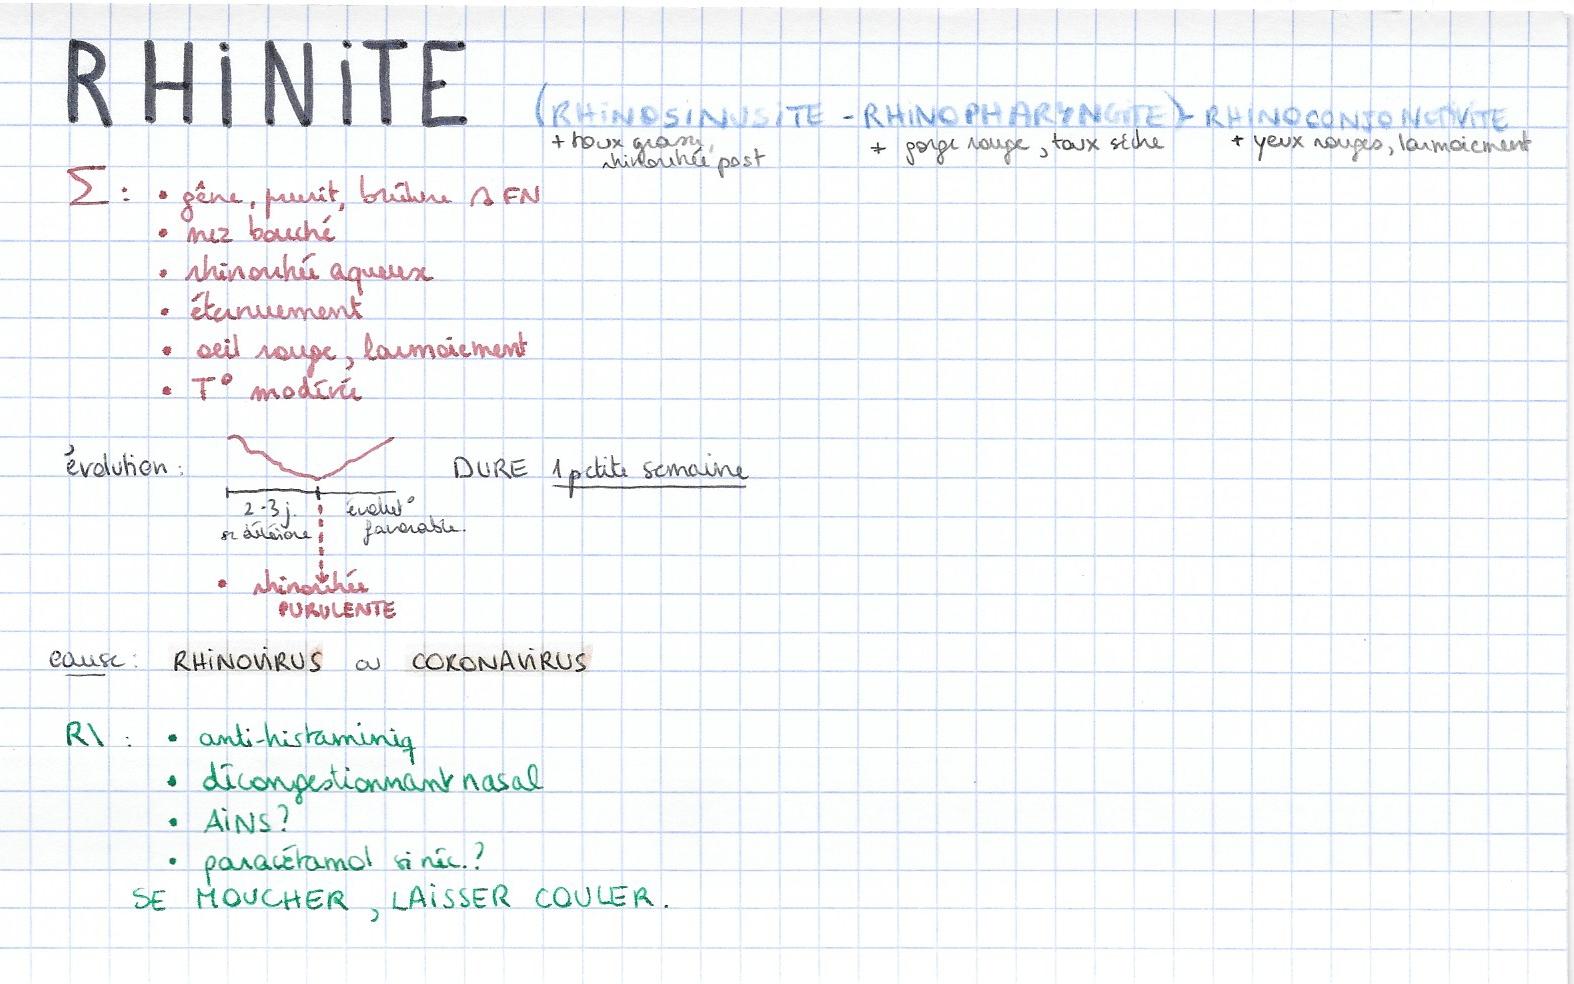 RHiNiTE
(RHiNOSiNUSiTE - RHiNOPHARYNGiTE) - RHiNOCONJONCTiVITE
+ toux grasse, + gorge rouge, toux sèche + yeux rouges, larmoiement
rhinorrhée post
Σ : • gêne, prurit, brûlure FN
• nez bouché
• rhinorrhée aqueux
• éternuement
• oeil rouge, larmoiement
• T° modérée
évolution : DURE 1 petite semaine
2-3 j. évolut° 
se détériore favorable.
• rhinorrhée
PURULENTE
cause : RHiNOViRUS ou CORONAViRUS
R\ : • anti-histaminiq
• décongestionnant nasal
• AiNS ?
• paracétamol si néc. ?
SE MOUCHER, LAiSSER COULER.